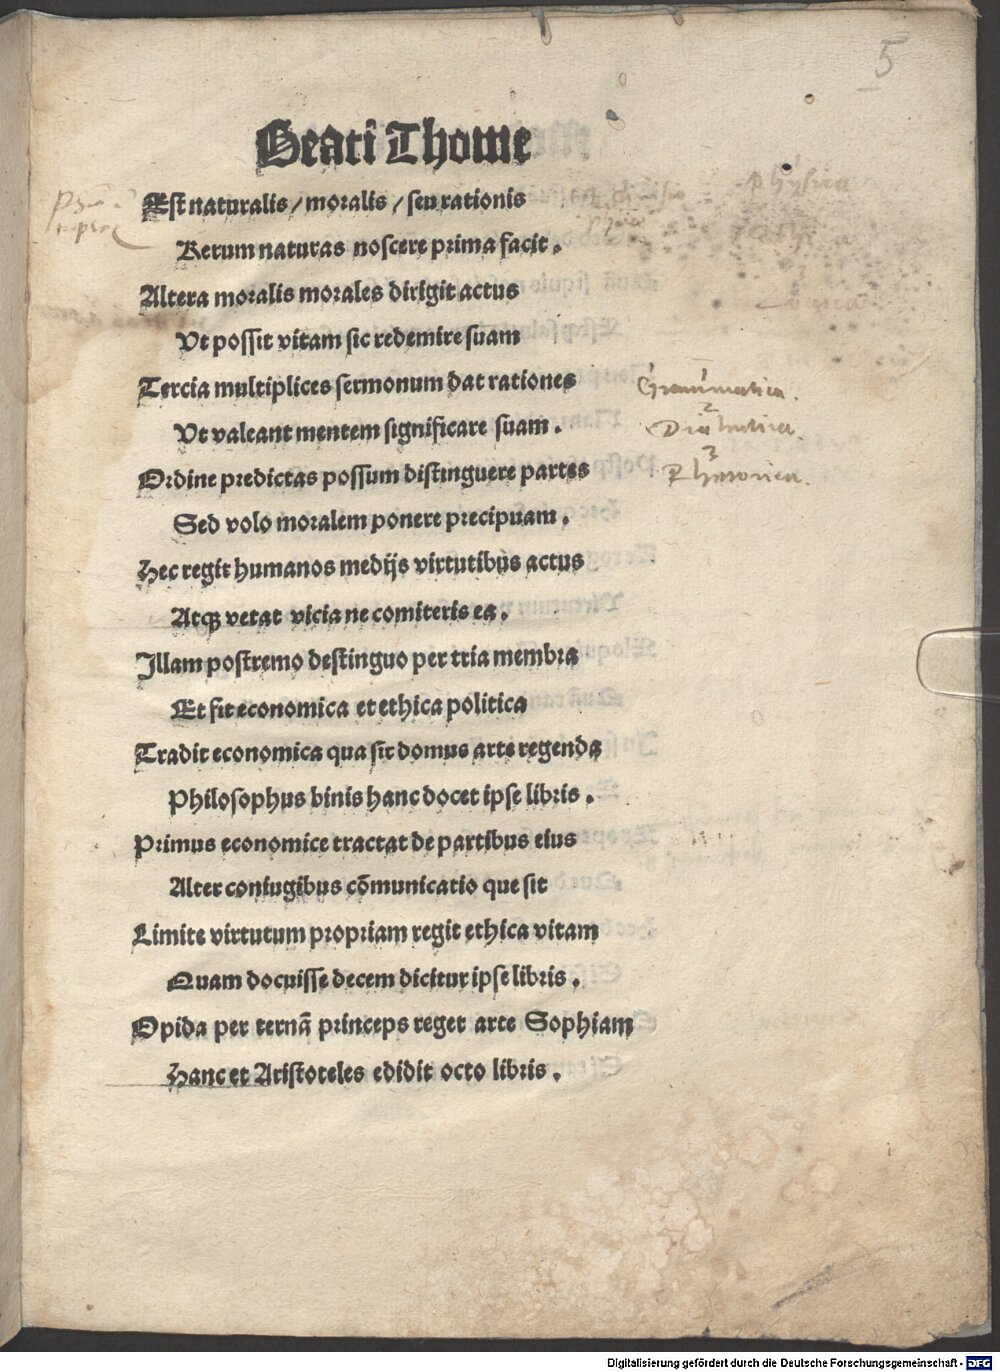 5
Beati Thome
Est naturalis / moralis / seu rationis
Physica
Rerum naturas noscere prima facit .
Altera moralis morales dirigit actus
Vt possit vitam sic redemire suam
Tercia multiplices sermonum dat rationes
1
Grammatica.
Vt valeant mentem significare suam .
2
Dialectica.
Ordine predictas possum distinguere partes
3
Rhetorica.
Sed volo moralem ponere precipuam .
Hec regit humanos medijs virtutibus actus
Atqꝫ vetat vicia ne comiteris ea .
Illam postremo destinguo per tria membra
Et fit economica et ethica politica
Tradit economica qua sit domus arte regenda
Philosophus binis hanc docet ipse libris .
Primus economice tractat de partibus eius
Alter coniugibus cōmunicatio que sit
Limite virtutum propriam regit ethica vitam
Quam docuisse decem dicitur ipse libris .
Opida per ternā princeps reget arte Sophiam
Hanc et Aristoteles edidit octo libris .
Digitalisierung gefördert durch die Deutsche Forschungsgemeinschaft - DFG